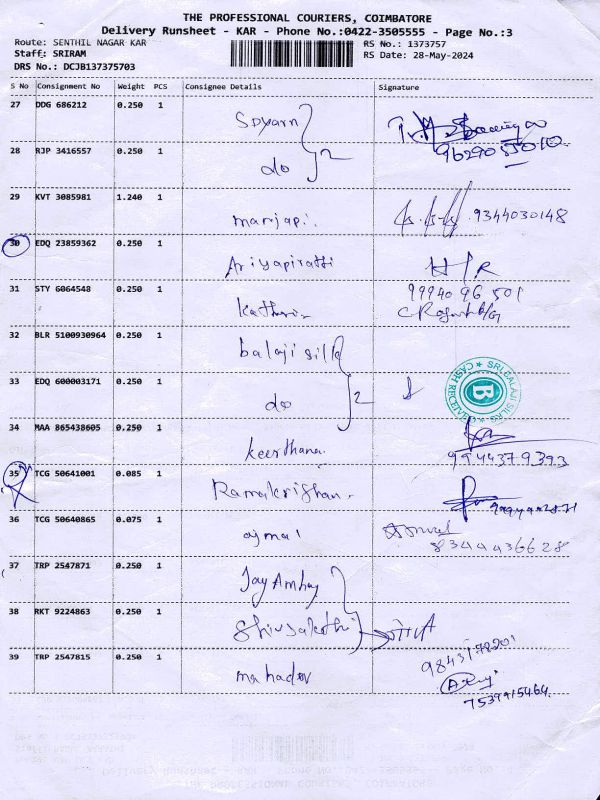 THE PROFESSIONAL COURIERS, COIMBATORE
Delivery Runsheet - KAR - Phone No.:0422-3505555 - Page No.:3
Route: SENTHIL NAGAR KAR
RS No.: 1373757
Staff: SRIRAM
RS Date: 28-May-2024
DRS No.: DCJB137375703
S No Consignment No Weight PCS Consignee Details Signature
27 DDG 686212 0.250 1
9629055010
28 RJP 3416557 0.250 1 do 2
29 KVT 3085981 1.240 1 9344030148
30 EDQ 23859362 0.250 1
31 STY 6064548 0.250 1 9994096501
32 BLR 5100930964 0.250 1 balaji silk
33 EDQ 600003171 0.250 1 do 2
SRI BALAJI SILKS
CASH RECEIVED
B
34 MAA 865438605 0.250 1 keerthana 9944379393
35 TCG 50641001 0.085 1 Ramakrishan
36 TCG 50640865 0.075 1 ajmal
8344436628
37 TRP 2547871 0.250 1
38 RKT 9224863 0.250 1 Shivsakthi
39 TRP 2547815 0.250 1 mahadev
9843178201
7539915464